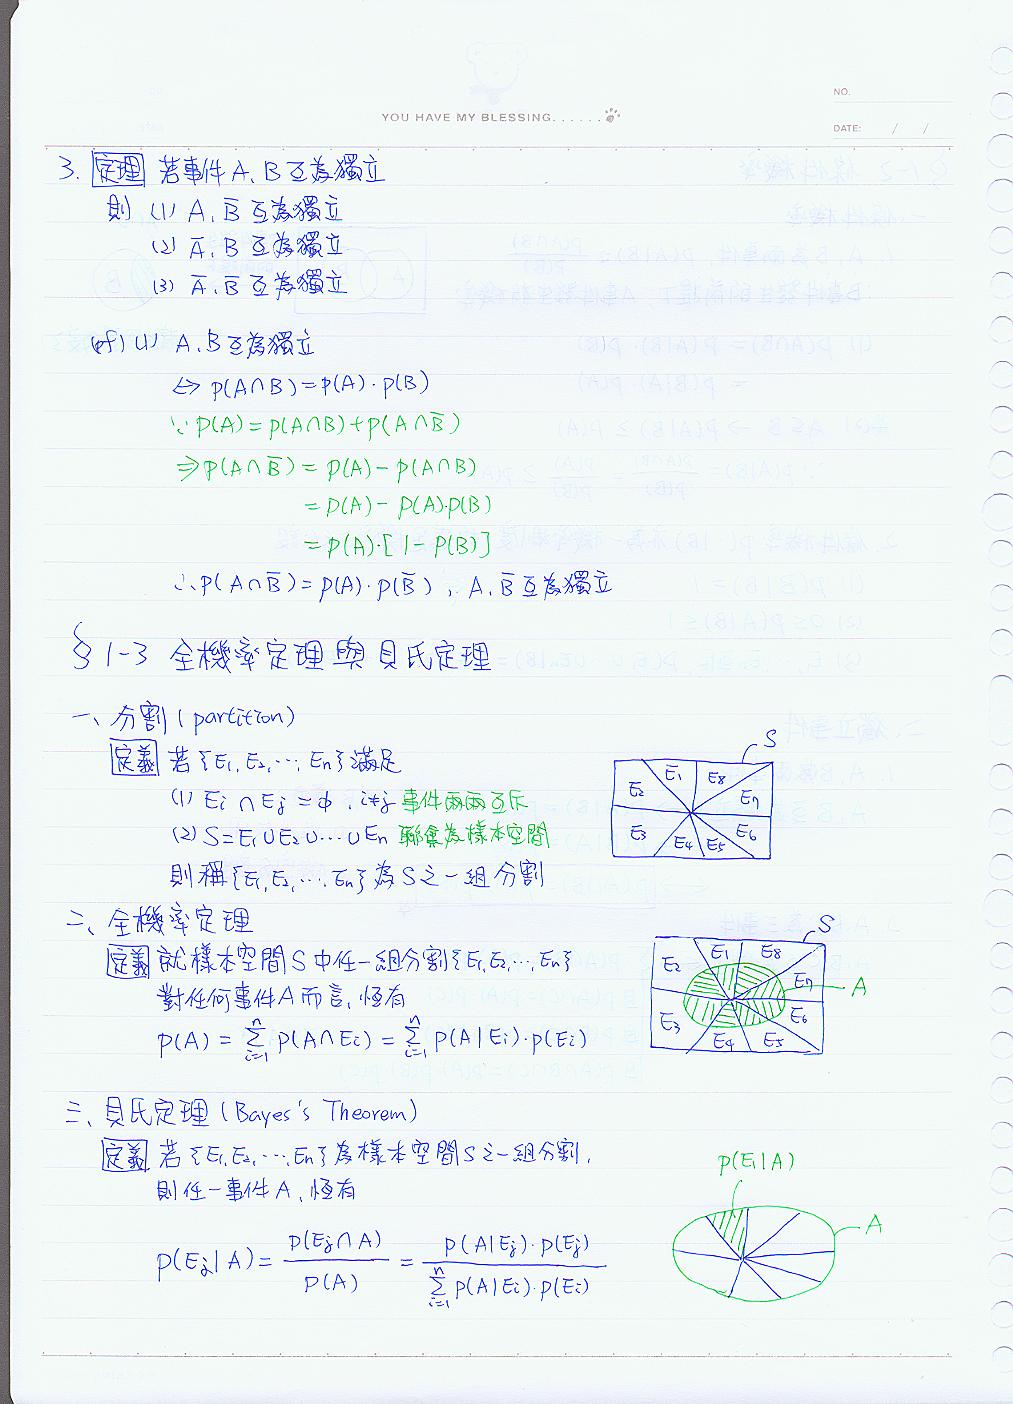 YOU HAVE MY BLESSING......
NO.
DATE: / /
3. 定理 若事件 A、B 互為獨立
則 (1) A、B̅ 互為獨立
(2) A̅、B 互為獨立
(3) A̅、B̅ 互為獨立
(pf) (1) A、B 互為獨立
⇔ P(A∩B) = P(A)·P(B)
∵ P(A) = P(A∩B) + P(A∩B̅)
⇒ P(A∩B̅) = P(A) − P(A∩B)
= P(A) − P(A)·P(B)
= P(A)·[1 − P(B)]
∴ P(A∩B̅) = P(A)·P(B̅), A、B̅ 互為獨立
§1-3 全機率定理與貝氏定理
一、分割 (partition)
定義 若{E1, E2, ⋯, En}滿足
(1) Ei ∩ Ej = ϕ, i≠j 事件兩兩互斥
(2) S = E1 ∪ E2 ∪ ⋯ ∪ En 聯集為樣本空間
則稱{E1, E2, ⋯, En}為S之一組分割
S
E1 E8
E2 E7
E3 E6
E4 E5
二、全機率定理
定義 就樣本空間S中任一組分割{E1, E2, ⋯, En}
對任何事件A而言,恆有
P(A) = Σ_{i=1}^{n} P(A∩Ei) = Σ_{i=1}^{n} P(A|Ei)·P(Ei)
S
E1 E8
E2 E7
A
E3 E6
E4 E5
三、貝氏定理 (Bayes's Theorem)
定義 若{E1, E2, ⋯, En}為樣本空間S之一組分割,
則任一事件A,恆有
P(Ej|A) = P(Ej∩A) / P(A) = P(A|Ej)·P(Ej) / Σ_{i=1}^{n} P(A|Ei)·P(Ei)
P(E1|A)
A